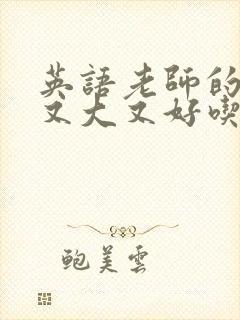 英語老師的
又大又好喫
鮑美雲